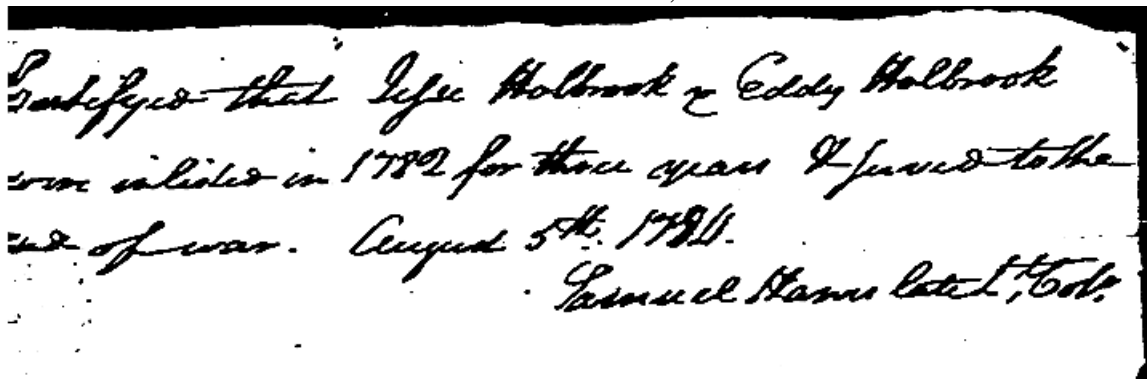 Certifyed that Jesse Holbrook & Eddy Holbrook
were inlisted in 1782 for three years & served to the
end of war. August 5th. 1784.
Samuel Hawes late Lt. Col.